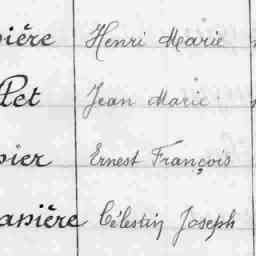 pière Henri Marie
Pet Jean Marie
pier Ernest François
anière Célestin Joseph